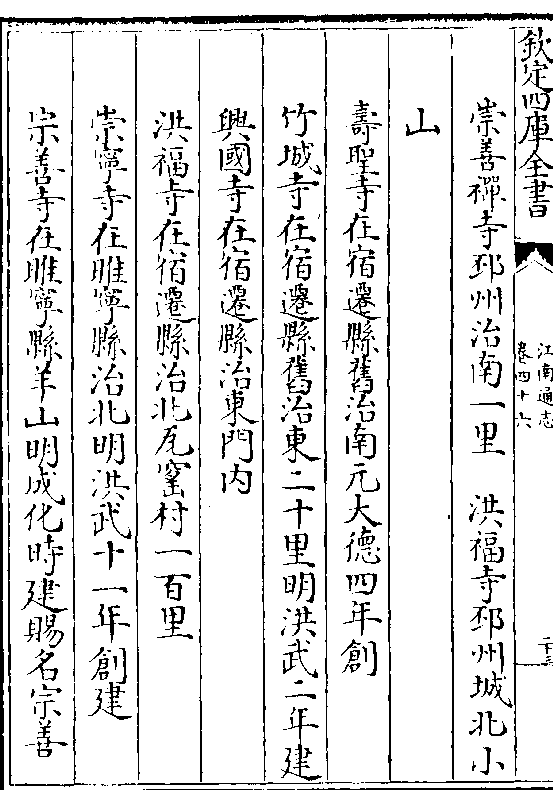 欽定四庫全書
江南通志
卷四十六
崇善禪寺邳州治南一里　洪福寺邳州城北小
山
壽聖寺在宿遷縣舊治南元大德四年創
竹城寺在宿遷縣舊治東二十里明洪武二年建
興國寺在宿遷縣治東門内
洪福寺在宿遷縣治北瓦窰村一百里
崇寧寺在睢寧縣治北明洪武十一年創建
宗善寺在睢寧縣羊山明成化時建賜名宗善